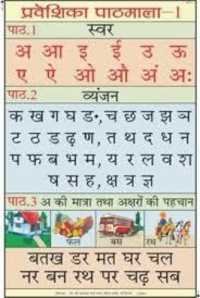 प्रवेशिका पाठमाला-1
पाठ.1 स्वर
अ आ इ ई उ ऊ
ए ऐ ओ औ अं अः
पाठ.2 व्यंजन
क ख ग घ ङ, च छ ज झ ञ
ट ठ ड ढ ण, त थ द ध न
प फ ब भ म, य र ल व श
ष स ह, क्ष त्र ज्ञ
पाठ.3 अ की मात्रा तथा अक्षरों की पहचान
फल बस रथ
बतख डर मत घर चल
नर बन रथ पर चढ़ सब